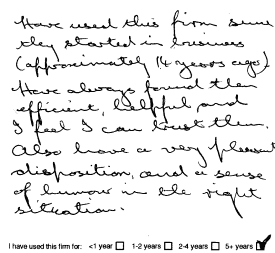 Have used this firm since
they started in business
(approximately 14 years ago)
Have always found them
efficient, helpful and
I feel I can trust them.
Also have a very pleasant
disposition, and a sense
of humour in the right
situation.
I have used this firm for: <1 year 1-2 years 2-4 years 5+ years